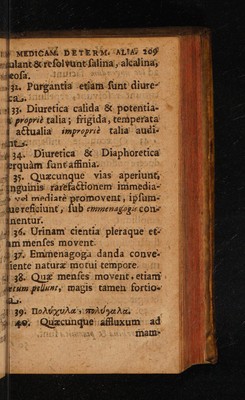 MEDICAM. DETERM. ALIA. 209
ulant & resolvunt salina, alcalina,
eosa.
32. Purgantia etiam sunt diure-
ca.
33. Diuretica calida & potentia-
propriè talia; frigida, temperata
actualia impropriè talia audi-
nt.
34. Diuretica & Diaphoretica
erquàm sunt affinia.
35. Quæcunque vias aperiunt,
nguinis rarefactionem immedia-
vel mediatè promovent, ipsum-
ue reficiunt, sub emmenagogis con-
nentur.
36. Urinam cientia pleraque et-
am menses movent.
37. Emmenagoga danda conve-
iente naturæ motui tempore.
38. Quæ menses movent, etiam
œtum pellunt, magis tamen fortio-
a.
39. Πολύχυλα, πολύγαλα.
40. Quæcunque affluxum ad
mam-